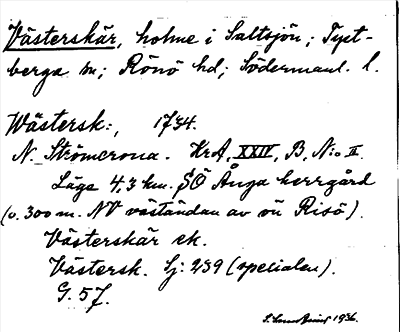 Västerskär, holme i Saltsjön; Tyst-
berga sn; Rönö hd; Södermanl. l.
Wästersk:, 1734.
N. Strömcrona. KrA, XXIV, B, N:o II.
Läge 4,3 km. SÖ Ånga herrgård
(o. 300 m. NV väständan av ön Risö).
Västerskär ek.
Västersk. Sj: 239 (specialen).
G. 57.
1936.